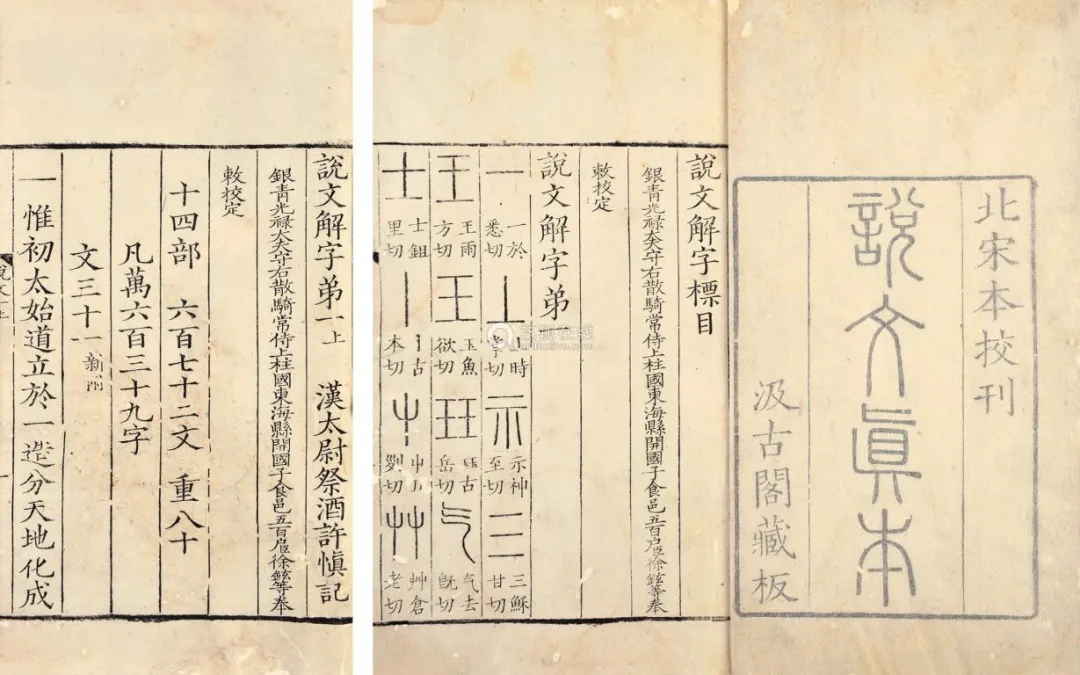 北宋本挍刊
說文眞本
汲古閣藏板
說文解字標目
銀青光祿大夫守右散騎常侍上柱國東海縣開國子食邑五百戶臣徐鉉等奉
敕挍定
說文解字弟一
一 一於悉切 丄 丄時掌切 示 示神至切 三 三穌甘切
王 王雨方切 玉 玉魚欲切 玨 玨古岳切 气 气去旣切
士 士鉏里切 丨 丨古本切 屮 屮丑列切 艸 艸倉老切
說文解字弟一上 漢太尉祭酒許慎記
銀青光祿大夫守右散騎常侍上柱國東海縣開國子食邑五百戶臣徐鉉等奉
敕挍定
十四部 六百七十二文 重八十
凡萬六百三十九字
文三十一新附
一 惟初太始道立於一造分天地化成